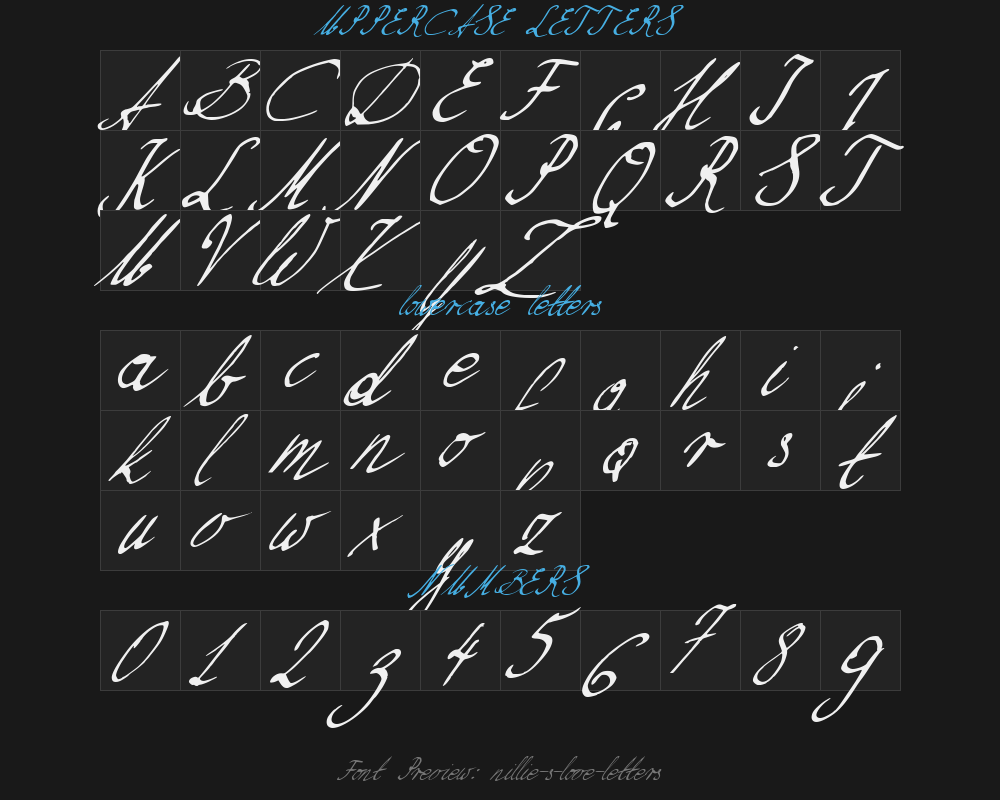 UPPERCASE LETTERS
A B C D E F G H I J
K L M N O P Q R S T
U V W X Y Z
lowercase letters
a b c d e f g h i j
k l m n o p q r s t
u v w x y z
NUMBERS
0 1 2 3 4 5 6 7 8 9
Font Preview: nillie-s-love-letters